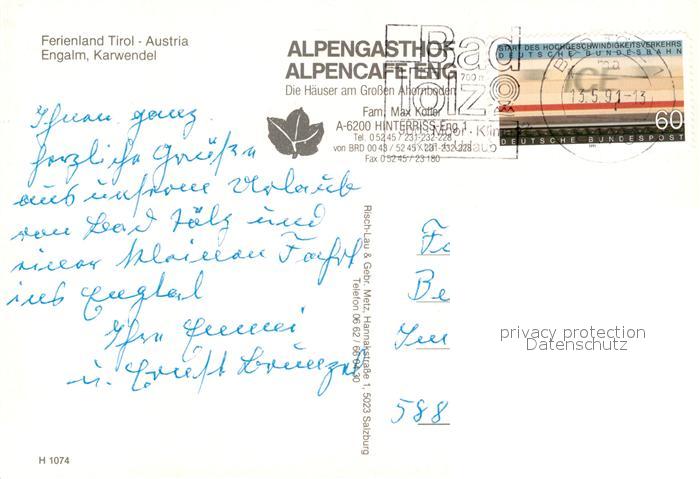 Ferienland Tirol - Austria
Engalm, Karwendel
ALPENGASTHOF
ALPENCAFE ENG
Die Häuser am Großen Ahornboden
Fam. Max Kofler
A-6200 HINTERRISS-Eng 1
Tel. 0 52 45 / 231-232-228
von BRD 00 43 / 52 45 / 231-232-228
Fax 0 52 45 / 23 180
Bad
Tölz
700 m
Moor
Urlaub
BAD TÖLZ 1
13.5.91-13
START DES HOCHGESCHWINDIGKEITSVERKEHRS
DEUTSCHE BUNDESBAHN
ICE
60
DEUTSCHE BUNDESPOST
1991
Ihnen ganz
herzliche Grüße
aus unserem Urlaub
von Bad Tölz und
einer kleinen Fahrt
ins Engtal
Ihre Emmi
u. Ernst
Risch-Lau & Gebr. Metz, Hannakstraße 1, 5023 Salzburg
Telefon 06 62 / 66 04 30
Be
588
privacy protection
Datenschutz
H 1074